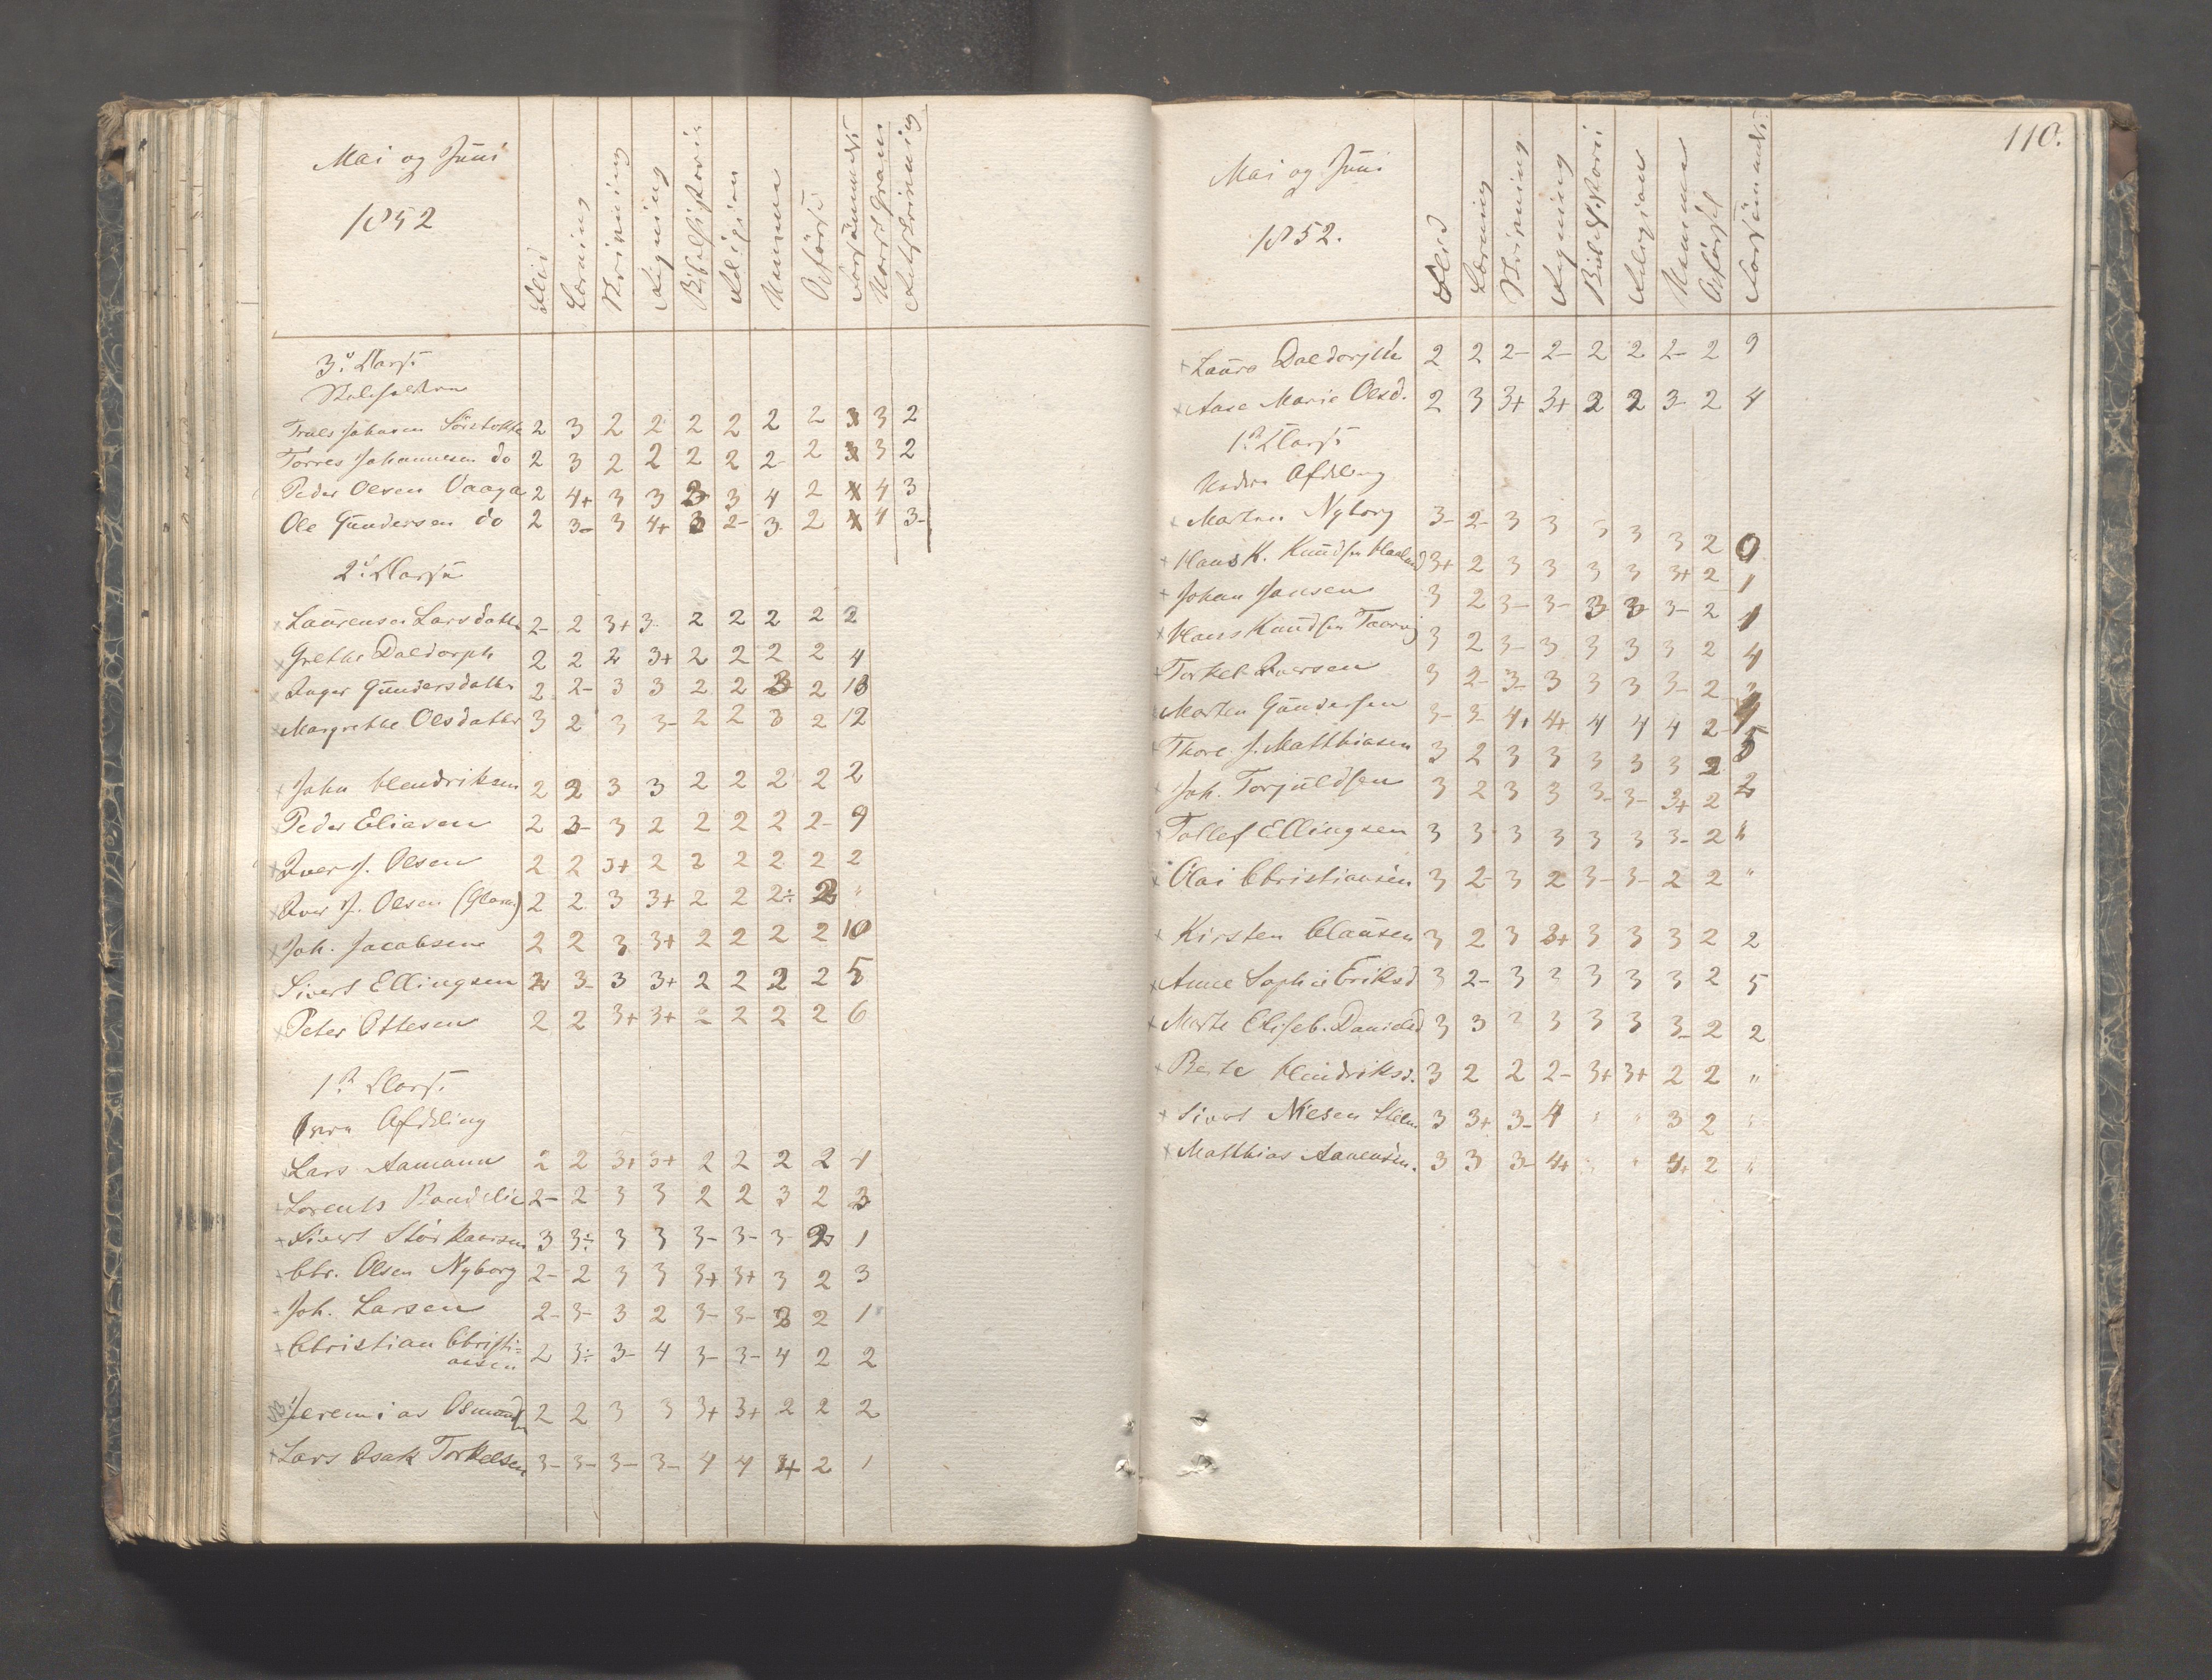 Mai og Juni
1852
Flid
Læsning
Skrivning
Regning
Bibelhistorie
Religion
Opførsel
Forsømmelse
Norsk Gram
Retskrivning
3. Klasse
Truls Johansen Sörstokke 2 3 2 2 2 2 2 2 3 3 2
Torres Johannesen do 2 3 2 2 2 2 2- 2 3 3 2
Peder Olsen Vaaga 2 4+ 3 3 3 3 4 2 4 4 3
Ole Gundersen do 2 3- 3 4+ 3 2- 3 2 4 4 3-
2. Klasse
Laurense Larsdatter 2- 2 3+ 3- 2 2 2 2 2
Grethe Daldorph 2 2 2 3+ 2 2 2 2 4
Inger Gundersdatter 2 2- 3 3 2 2 3 2 13
Margrethe Olsdatter 3 2 3 3- 2 2 3 2 12
John Hendriksen 2 2 3 3 2 2 2 2 2
Peder Eliasen 2 3- 3 2 2 2 2 2- 9
Iver J. Olsen 2 2 3+ 2 2 2 2 2 2
Iver J. Olsen 2 2 3 3+ 2 2 2÷ 2 "
Joh. Jacobsen 2 2 3 3+ 2 2 2 2 10
Sivert Ellingsen 2 3- 3 3+ 2 2 2 2 5
Peter Ottesen 2 2 3+ 3+ 2 2 2 2 6
1ste Klasse
Øvre Afdeling
Lars Aamann 2 2 3+ 3+ 2 2 2 2 4
Lorents Bandelie 2- 2 3 3 2 2 3 2 3
Sivert Störkaarsen 3 3÷ 3 3 3- 3- 3- 2 1
Chr. Olsen Nyborg 2- 2 3 3 3+ 3+ 3 2 3
Joh. Larsen 2- 3- 3 2 3- 3- 3 2 1
Christian Christi=
ansen 2 3÷ 3- 4 3- 3- 4 2 2
Jeremias Osmundsen 2 2 3 3 3+ 3+ 2 2 2
Lars Isak Torkelsen 3- 3- 3- 3- 4 4 4+ 2 1
110.
Mai og Juni
1852.
Flid
Læsning
Skrivning
Regning
Bibelhistorie
Religion
Opførsel
Forsømmelse
Laura Daldorph 2 2 2- 2- 2 2 2- 2 9
Aase Marie Olsd. 2 3 3+ 3+ 2 2 3- 2 4
1ste Klasse
Nedre Afdeling
Morten Nyborg 3- 2- 3 3 3 3 3 2 0
Hans K. Knudsen Haaland 3+ 2 3 3 3 3 3+ 2 1
Johan Jansen 3 2 3- 3- 3 3 3- 2 1
Hans Knudsen 3 2 3- 3 3 3 3 2 4
Torkel Iversen 3 2- 3- 3 3 3 3- 2 3
Morten Gundersen 3- 3- 4+ 4+ 4 4 4 2 4
Thore J. Matthiasen 3 2 3 3 3 3 3 2 5
Joh. Torjuldsen 3 2 3 3 3- 3- 3+ 2 2
Tollef Ellingsen 3 3 3 3 3 3 3- 2 "
Olai Christiansen 3 2- 3 2 3- 3- 2 2 "
Kirsten Clausen 3 2 3 3+ 3 3 3 2 2
Anne Sophie Eriksd 3 2- 3 3 3 3 3 2 5
Marte Eliseb. Danielsd 3 3 3 3 3 3 3- 2 2
Berte Hendriksd. 3 2 2 2- 3+ 3+ 2 2 "
Sivert Nilsen 3 3+ 3- 4 " " 3 2 "
Matthias Aanensen. 3 3 3- 4+ " " 4+ 2 "